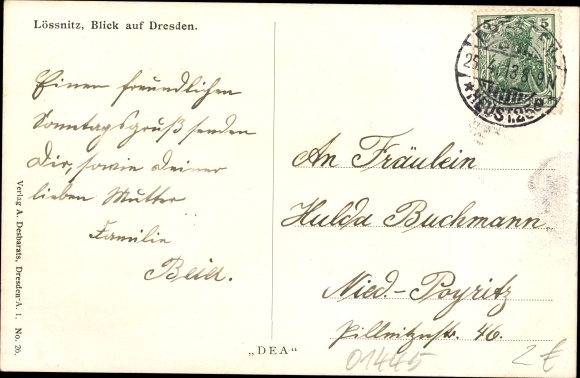 Lössnitz, Blick auf Dresden.
Einen freundlichen
Sonntagsgruß senden
Dir, sowie Deiner
lieben Mutter
Familie
An Fräulein
Hulda Buchmann
Nied.-Poyritz
Pillnitzerstr. 46.
Verlag A. Desbarats, Dresden-A. 1. No. 20.
„DEA“
01445
2 €
5 5